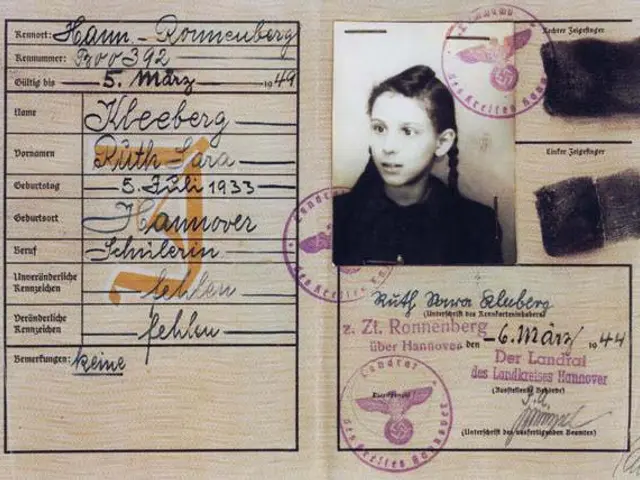 Kennort: Hann-Ronnenberg
Kennummer: B00392
Gültig bis 5. März 1949
Name Kleeberg
Vornamen Ruth Sara
Geburtstag 5. Juli 1933
Geburtsort Hannover
Beruf Schülerin
Unveränderliche Kennzeichen fehlen
Veränderliche Kennzeichen fehlen
Bemerkungen: keine
J
Rechter Zeigefinger
Linker Zeigefinger
Ruth Sara Kleeberg
(Unterschrift des Kennkarteninhabers)
z. Zt. Ronnenberg
über Hannover den 6. März 1944
Der Landrat
des Landkreises Hannover
(Ausstellende Behörde)
(Unterschrift des ausfertigenden Beamten)
Landrat
des Kreises Hannover